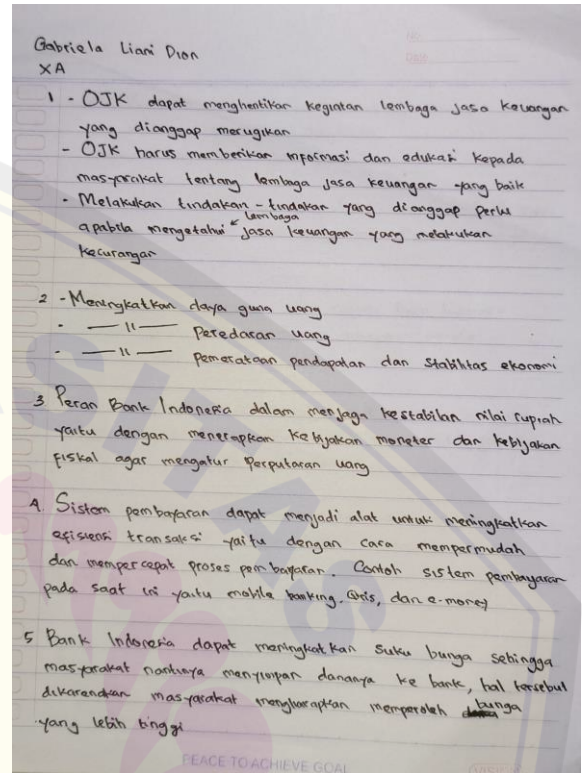 No.
Date
Gabriela Liani Dion
XA
1 - OJK dapat menghentikan kegiatan lembaga jasa keuangan
yang dianggap merugikan
- OJK harus memberikan informasi dan edukasi kepada
masyarakat tentang lembaga jasa keuangan yang baik
- Melakukan tindakan - tindakan yang dianggap perlu
apabila mengetahui lembaga jasa keuangan yang melakukan
kecurangan
2 - Meningkatkan daya guna uang
- — 11 — Peredaran uang
- — 11 — Pemerataan pendapatan dan stabilitas ekonomi
3 Peran Bank Indonesia dalam menjaga kestabilan nilai rupiah
yaitu dengan menerapkan kebijakan moneter dan kebijakan
fiskal agar mengatur perputaran uang
4. Sistem pembayaran dapat menjadi alat untuk meningkatkan
efisiensi transaksi yaitu dengan cara mempermudah
dan mempercepat proses pembayaran. Contoh sistem pembayaran
pada saat ini yaitu mobile banking, Qris, dan e-money
5 Bank Indonesia dapat meningkatkan suku bunga sehingga
masyarakat nantinya menyimpan dananya ke bank, hal tersebut
dikarenakan masyarakat mengharapkan memperoleh bunga
yang lebih tinggi
SITAS
PEACE TO ACHIEVE GOAL